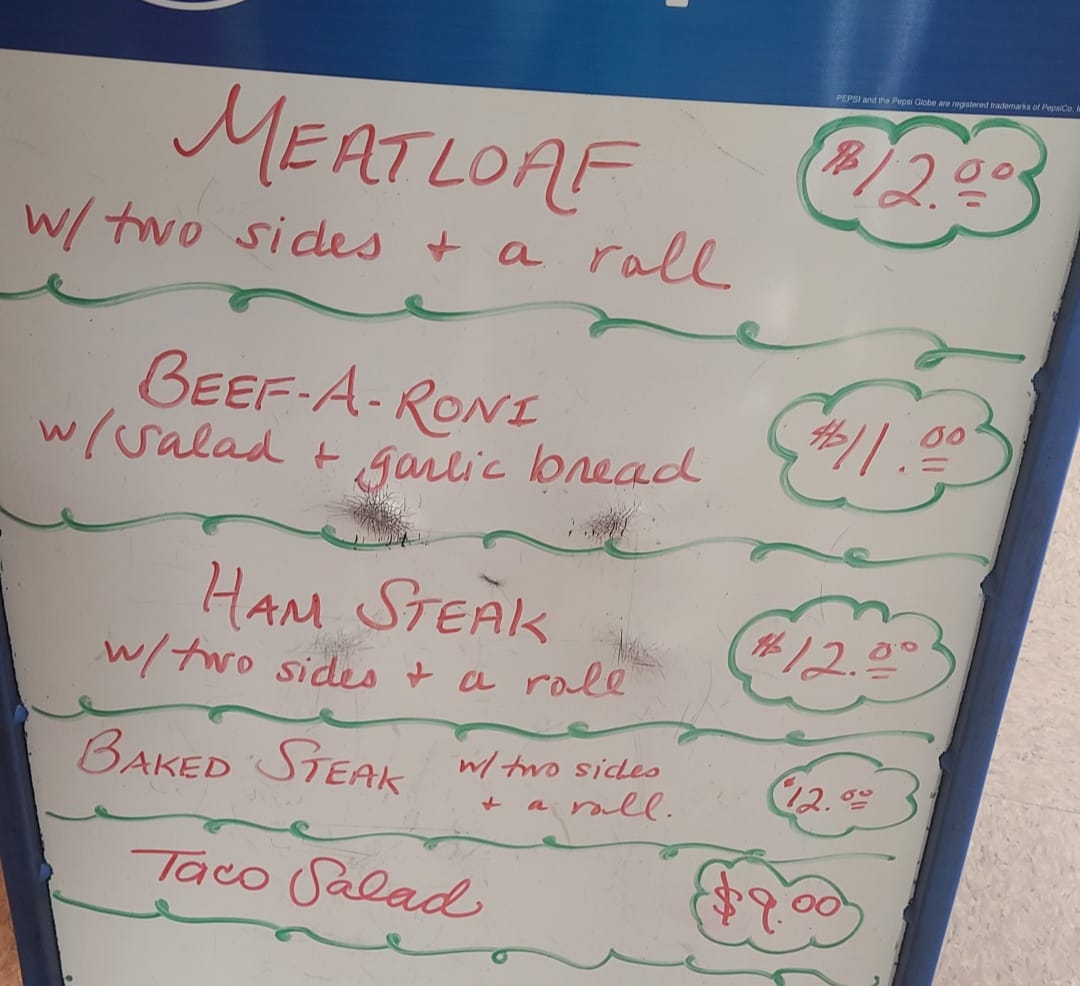 PEPSI and the Pepsi Globe are registered trademarks of PepsiCo,
MEATLOAF $12.00
w/ two sides + a roll
BEEF-A-RONI $11.00
w/ salad + garlic bread
HAM STEAK $12.00
w/ two sides + a roll
BAKED STEAK w/ two sides $12.00
+ a roll.
Taco Salad $9.00